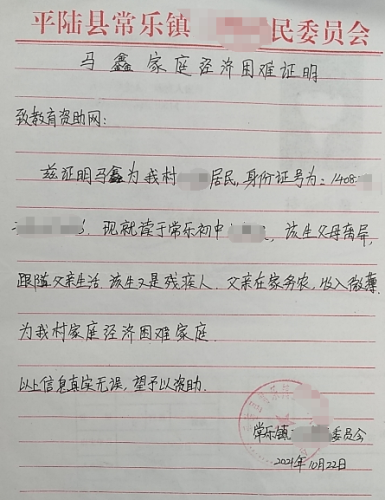 平陆县常乐镇 民委员会
马鑫家庭经济困难证明
致教育资助网:
兹证明马鑫为我村 居民,身份证号为:1408
现就读于常乐初中 ,该生父母离异,
跟随父亲生活,该生又是残疾人,父亲在家务农,收入微薄,
为我村家庭经济困难家庭.
以上信息真实无误,望予以资助.
常乐镇 委员会
2021年10月22日